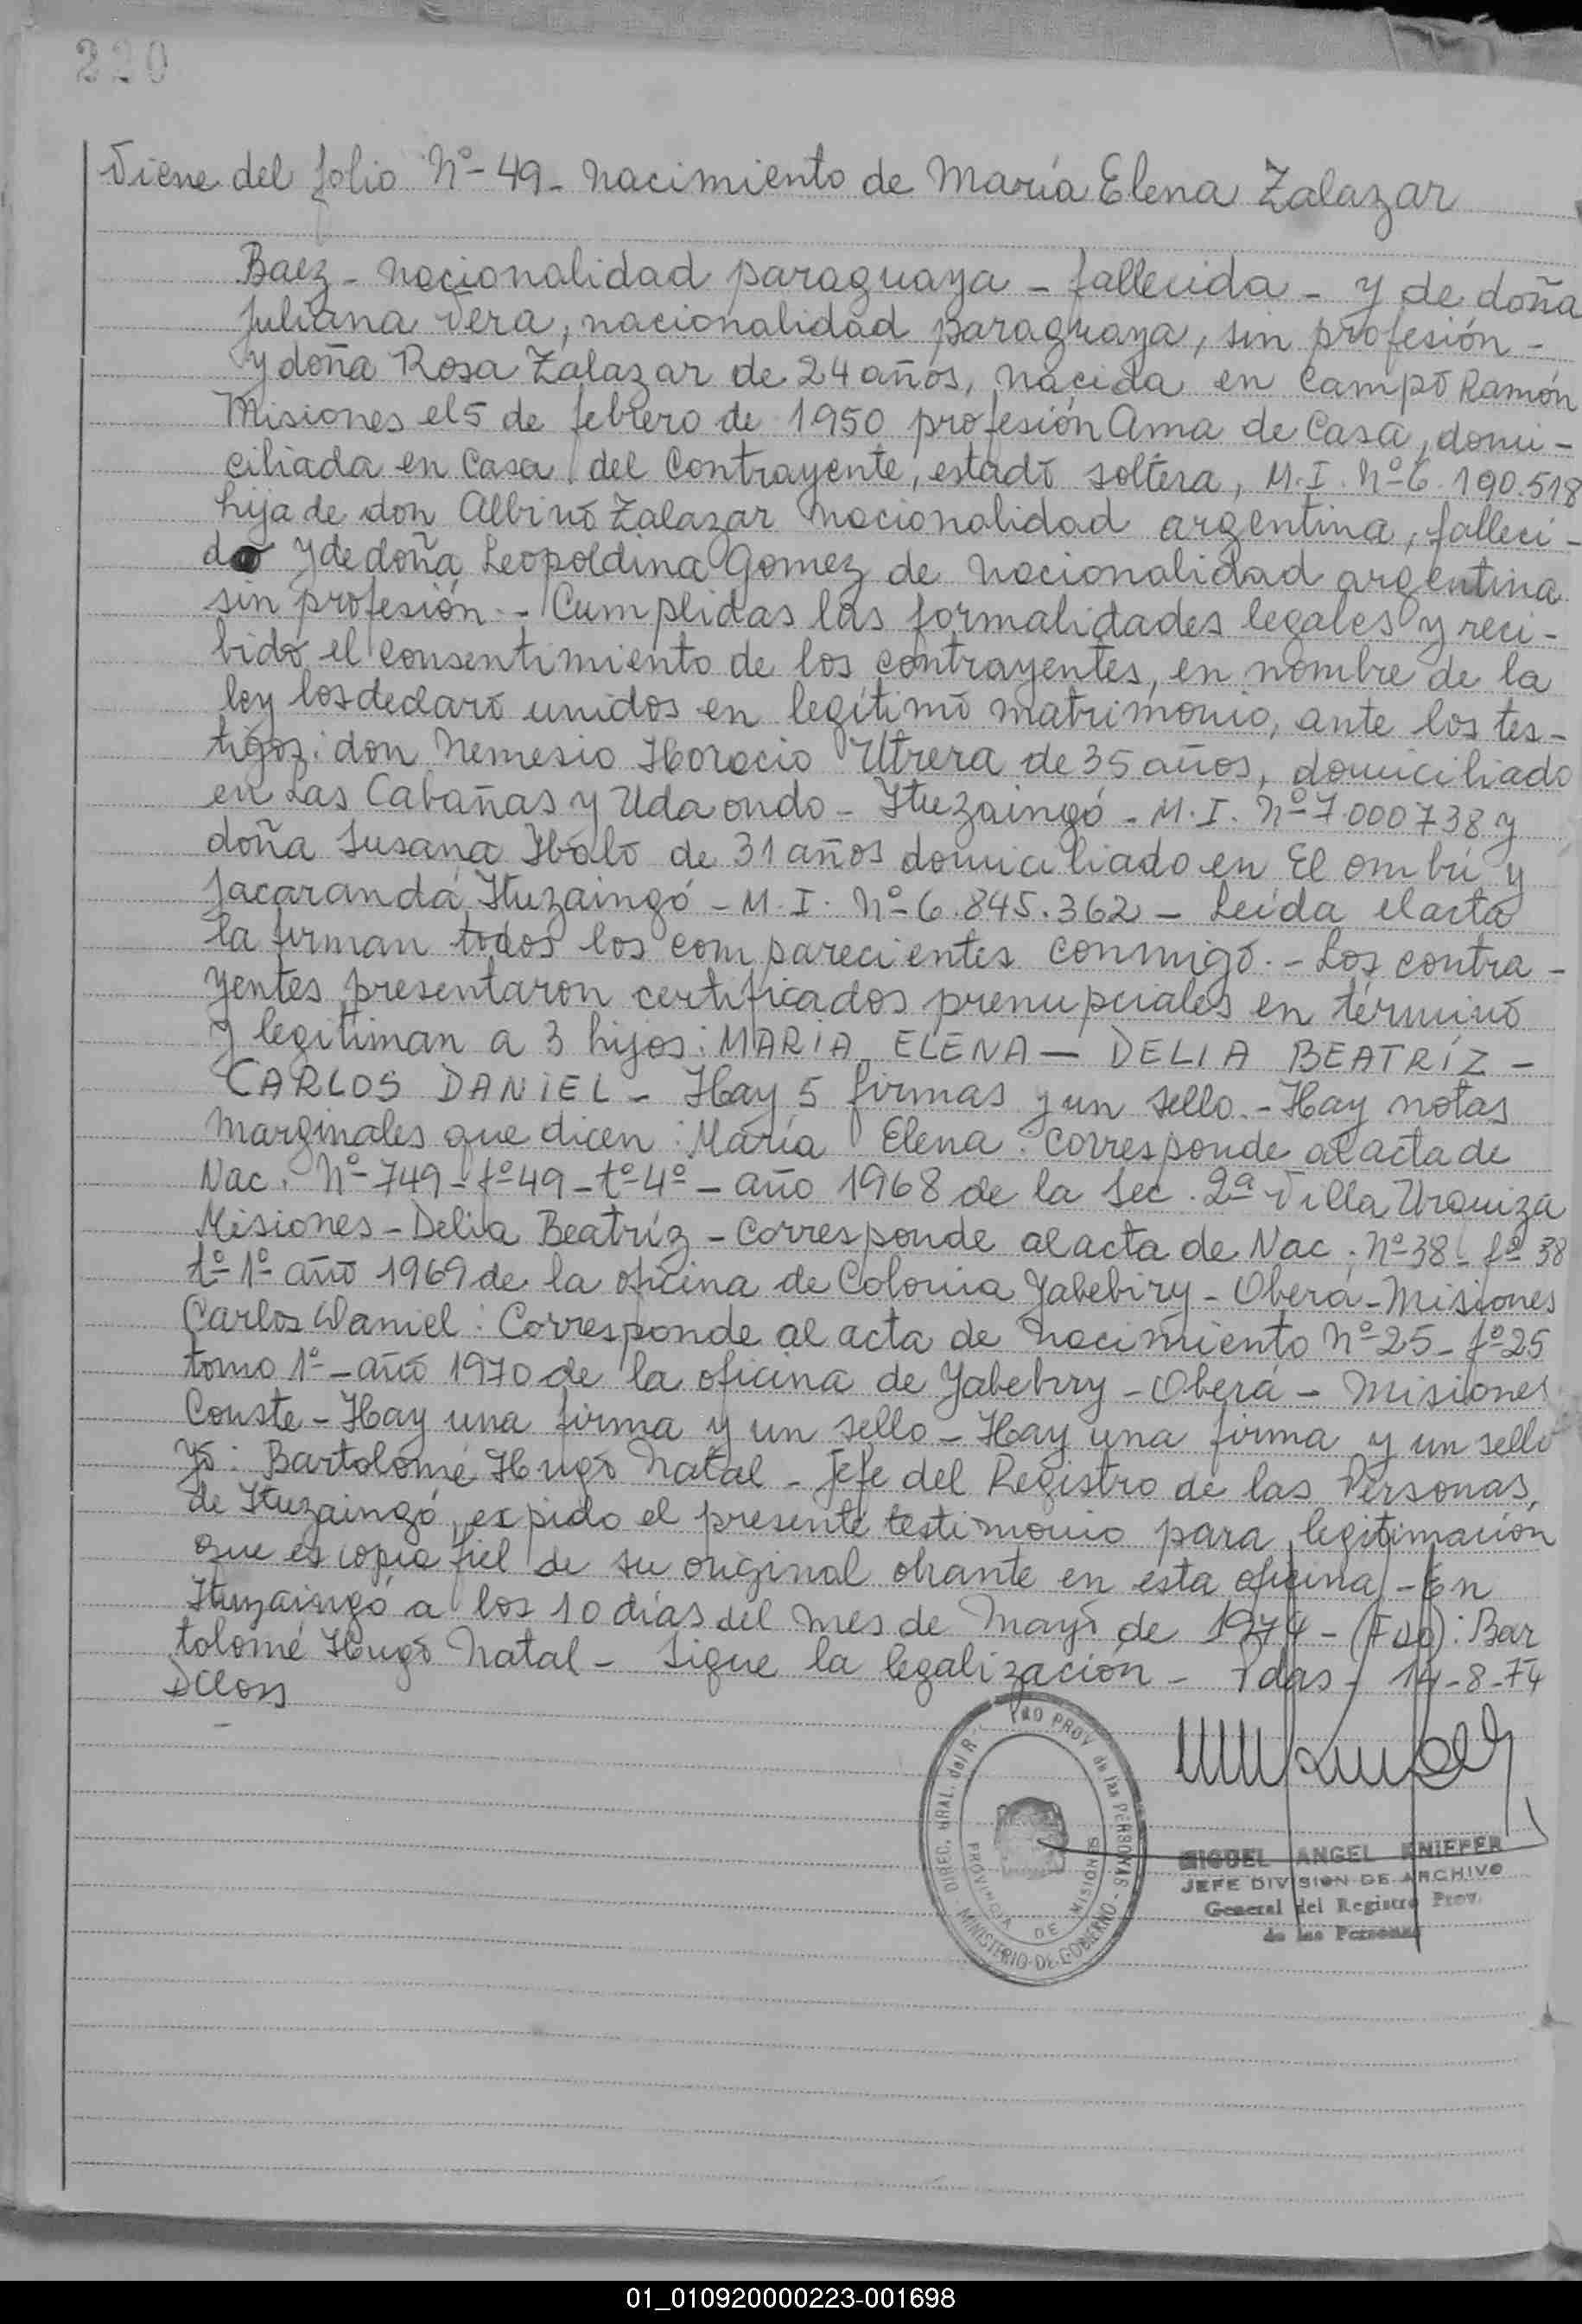 220
Viene del folio Nº- 49- nacimiento de María Elena Zalazar
Baez - nacionalidad paraguaya - fallecida - y de doña
Juliana Vera, nacionalidad paraguaya, sin profesión -
y doña Rosa Zalazar de 24 años, nacida en Campo Ramón
Misiones el 5 de febrero de 1950 profesión Ama de Casa, domi-
ciliada en Casa del Contrayente, estado soltera, M.I. Nº-6.190.518
hija de don Albino Zalazar nacionalidad argentina, falleci-
do y de doña Leopoldina Gomez de nacionalidad argentina
sin profesión.- Cumplidas las formalidades legales y reci-
bido el consentimiento de los contrayentes, en nombre de la
ley los declaro unidos en legítimo matrimonio, ante los tes-
tigos: don Nemesio Horacio Utrera de 35 años, domiciliado
en Las Cabañas y Udaondo - Ituzaingó - M.I. Nº-7.000738 y
doña Susana de 31 años domiciliado en El ombú y
Jacarandá Ituzaingó - M.I. Nº-6.845.362 - Leída el acta
la firman todos los comparecientes conmigo.- Los contra-
yentes presentaron certificados prenupciales en término
y legitiman a 3 hijos: MARIA ELENA - DELIA BEATRÍZ -
CARLOS DANIEL - Hay 5 firmas y un sello.- Hay notas
marginales que dicen: María Elena: Corresponde al acta de
Nac. Nº-749- fº-49- tº-4º - año 1968 de la Sec. 2ª Villa Urquiza
Misiones - Delia Beatríz - Corresponde al acta de Nac. Nº-38- fº-38
tº-1º- año 1969 de la oficina de Colonia Yabebiry - Oberá - Misiones
Carlos Daniel: Corresponde al acta de nacimiento Nº-25- fº-25
tomo 1º- año 1970 de la oficina de Yabebiry - Oberá - Misiones
Conste - Hay una firma y un sello - Hay una firma y un sello
Yo: Bartolomé Hugo Natal - Jefe del Registro de las Personas,
de Ituzaingó, expido el presente testimonio para legitimación
que es copia fiel de su original obrante en esta oficina - En
Ituzaingó a los 10 días del mes de Mayo de 1974 - (Fdo): Bar
tolomé Hugo Natal - Sigue la legalización - Pdas - 14-8-74
DIREC. GRAL. del REGISTRO PROV. de las PERSONAS - MINISTERIO DE GOBIERNO -
PROVINCIA DE MISIONES
MIGUEL ANGEL ENIEFER
JEFE DIVISION DE ARCHIVO
General del Registro Prov.
de las Personas
01_010920000223-001698